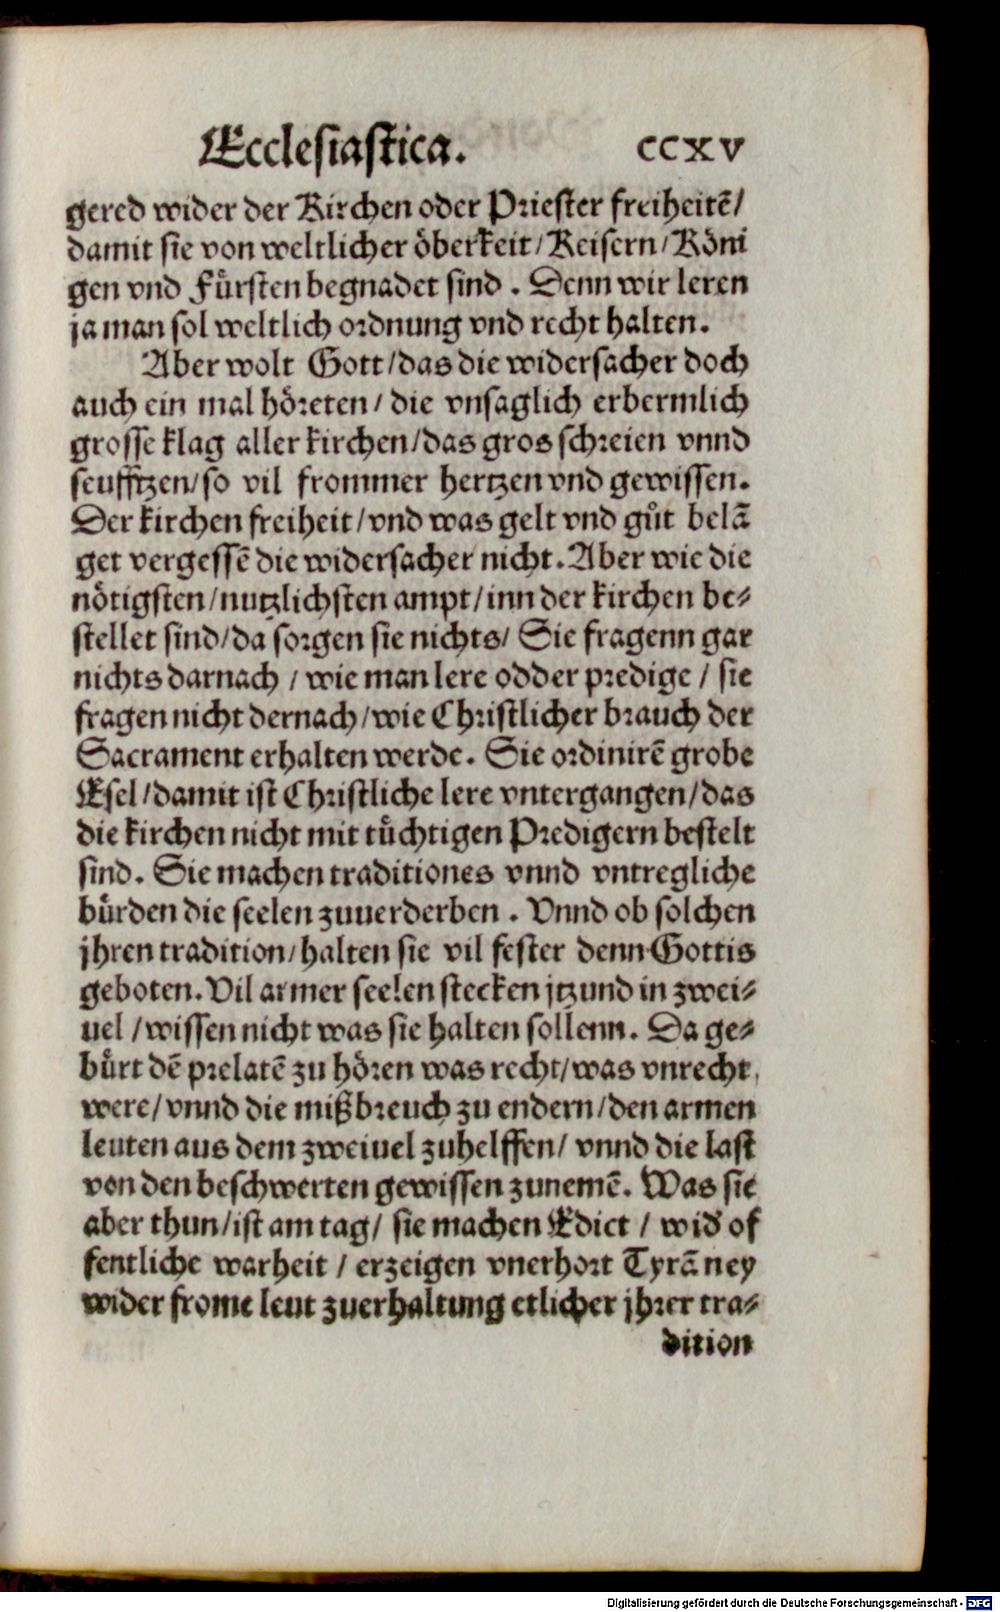 Ecclesiastica. CCXV
gered wider der Kirchen oder Priester freiheitē/
damit sie von weltlicher öberkeit/Keisern/Köni
gen vnd Fürsten begnadet sind. Denn wir leren
ja man sol weltlich ordnung vnd recht halten.
Aber wolt Gott/das die widersacher doch
auch ein mal höreten/ die vnsaglich erbermlich
grosse klag aller kirchen/das gros schreien vnnd
seufftzen/so vil frommer hertzen vnd gewissen.
Der kirchen freiheit/vnd was gelt vnd gůt belā
get vergessē die widersacher nicht. Aber wie die
nötigsten/nutzlichsten ampt/inn der kirchen be⸗
stellet sind/da sorgen sie nichts/ Sie fragenn gar
nichts darnach / wie man lere odder predige / sie
fragen nicht dernach/wie Christlicher brauch der
Sacrament erhalten werde. Sie ordinirē grobe
Esel/damit ist Christliche lere vntergangen/das
die kirchen nicht mit tüchtigen Predigern bestelt
sind. Sie machen traditiones vnnd vntregliche
bürden die seelen zuuerderben. Vnnd ob solchen
jhren tradition/halten sie vil fester denn Gottis
geboten. Vil armer seelen stecken jtzund in zwei⸗
uel /wissen nicht was sie halten sollenn. Da ge⸗
bürt dē prelatē zu hören was recht/was vnrecht
were/vnnd die mißbreuch zu endern/den armen
leuten aus dem zweiuel zuhelffen/ vnnd die last
von den beschwerten gewissen zunemē. Was sie
aber thun/ist am tag/ sie machen Edict / wid' of
fentliche warheit / erzeigen vnerhort Tyrāney
wider frome leut zuerhaltung etlicher jhrer tra⸗
dition
Digitalisierung gefördert durch die Deutsche Forschungsgemeinschaft - DFG